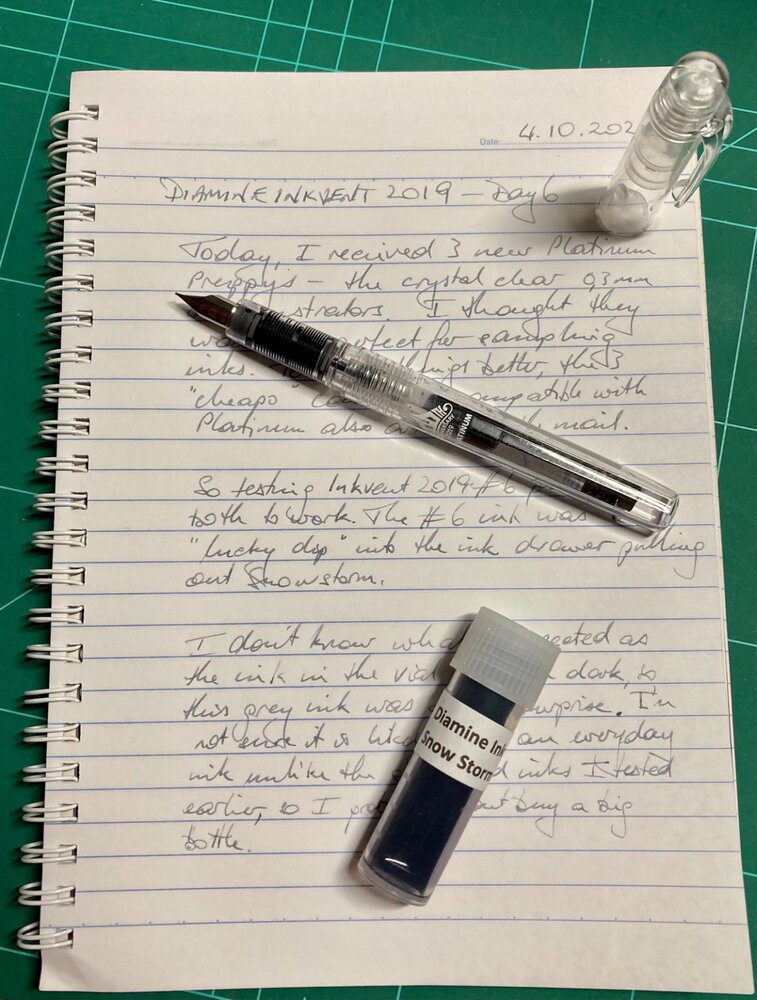 Date: 4.10.202
DIAMINE INKVENT 2019 – Day 6
Today, I received 3 new Platinum
Preppys – the crystal clear 0,3mm
strators. I thought they
fect for sampling
inks. things better, the 3
"cheapo" compatible with
Platinum also mail.
So testing Inkvent 2019 #6
both to work. The #6 ink was
"lucky dip" into the ink drawer pulling
out Snowstorm.
I don't know wha ected as
the ink in the vial dark, so
this grey ink was urprise. I'm
not sure it is an everyday
ink unlike the d inks I tested
earlier, so I buy a big
bottle.
PLATINUM
Diamine Ink
Snow Storm